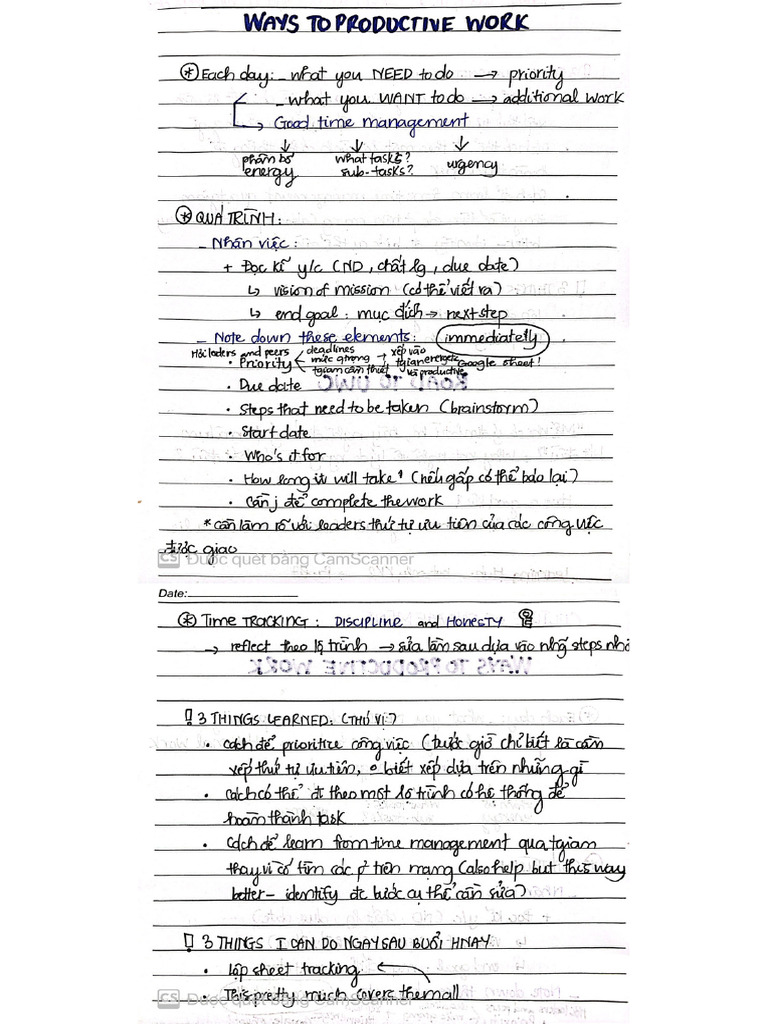 WAYS TO PRODUCTIVE WORK
* Each day: - what you NEED to do → priority
- what you WANT to do → additional work
→ Good time management
phân bổ energy
what tasks? sub-tasks?
urgency
* QUÁ TRÌNH:
- Nhận việc:
+ Đọc kĩ y/c (ND, chất lg, due date)
↳ vision of mission (có thể viết ra)
↳ end goal: mục đích → next step
- Note down these elements: immediately
Hỏi leaders and peers
• Priority
deadlines
mức qtrọng
tgiam cần thiết
→ xếp vào
tgian energetic
và productive
Google sheet!
• Due date
• Steps that need to be taken (brainstorm)
• Start date
• Who's it for
• How long it will take! (nếu gấp có thể báo lại)
• Cần j để complete the work
* cần làm rõ với leaders thứ tự ưu tiên của các công việc
được giao
CS Được quét bằng CamScanner
Date:
* TIME TRACKING: DISCIPLINE and HONESTY
→ reflect theo lộ trình → sửa lần sau dựa vào nhg̃ steps nhỏ
! 3 THINGS LEARNED: (THÚ VỊ)
• cách để prioritize công việc (trước giờ chỉ biết là cần
xếp thứ tự ưu tiên, o biết xếp dựa trên những gì
• cách có thể đi theo một lộ trình có hệ thống để
hoàn thành task
• Cách để learn from time management qua tgian
thay vì cố tìm các p² trên mạng (also help but this way
better - identify đc bước cụ thể cần sửa)
! 3 THINGS I CAN DO NGAY SAU BUỔI HNAY
• lập sheet tracking
• This pretty much covers them all
CS Được quét bằng CamScanner